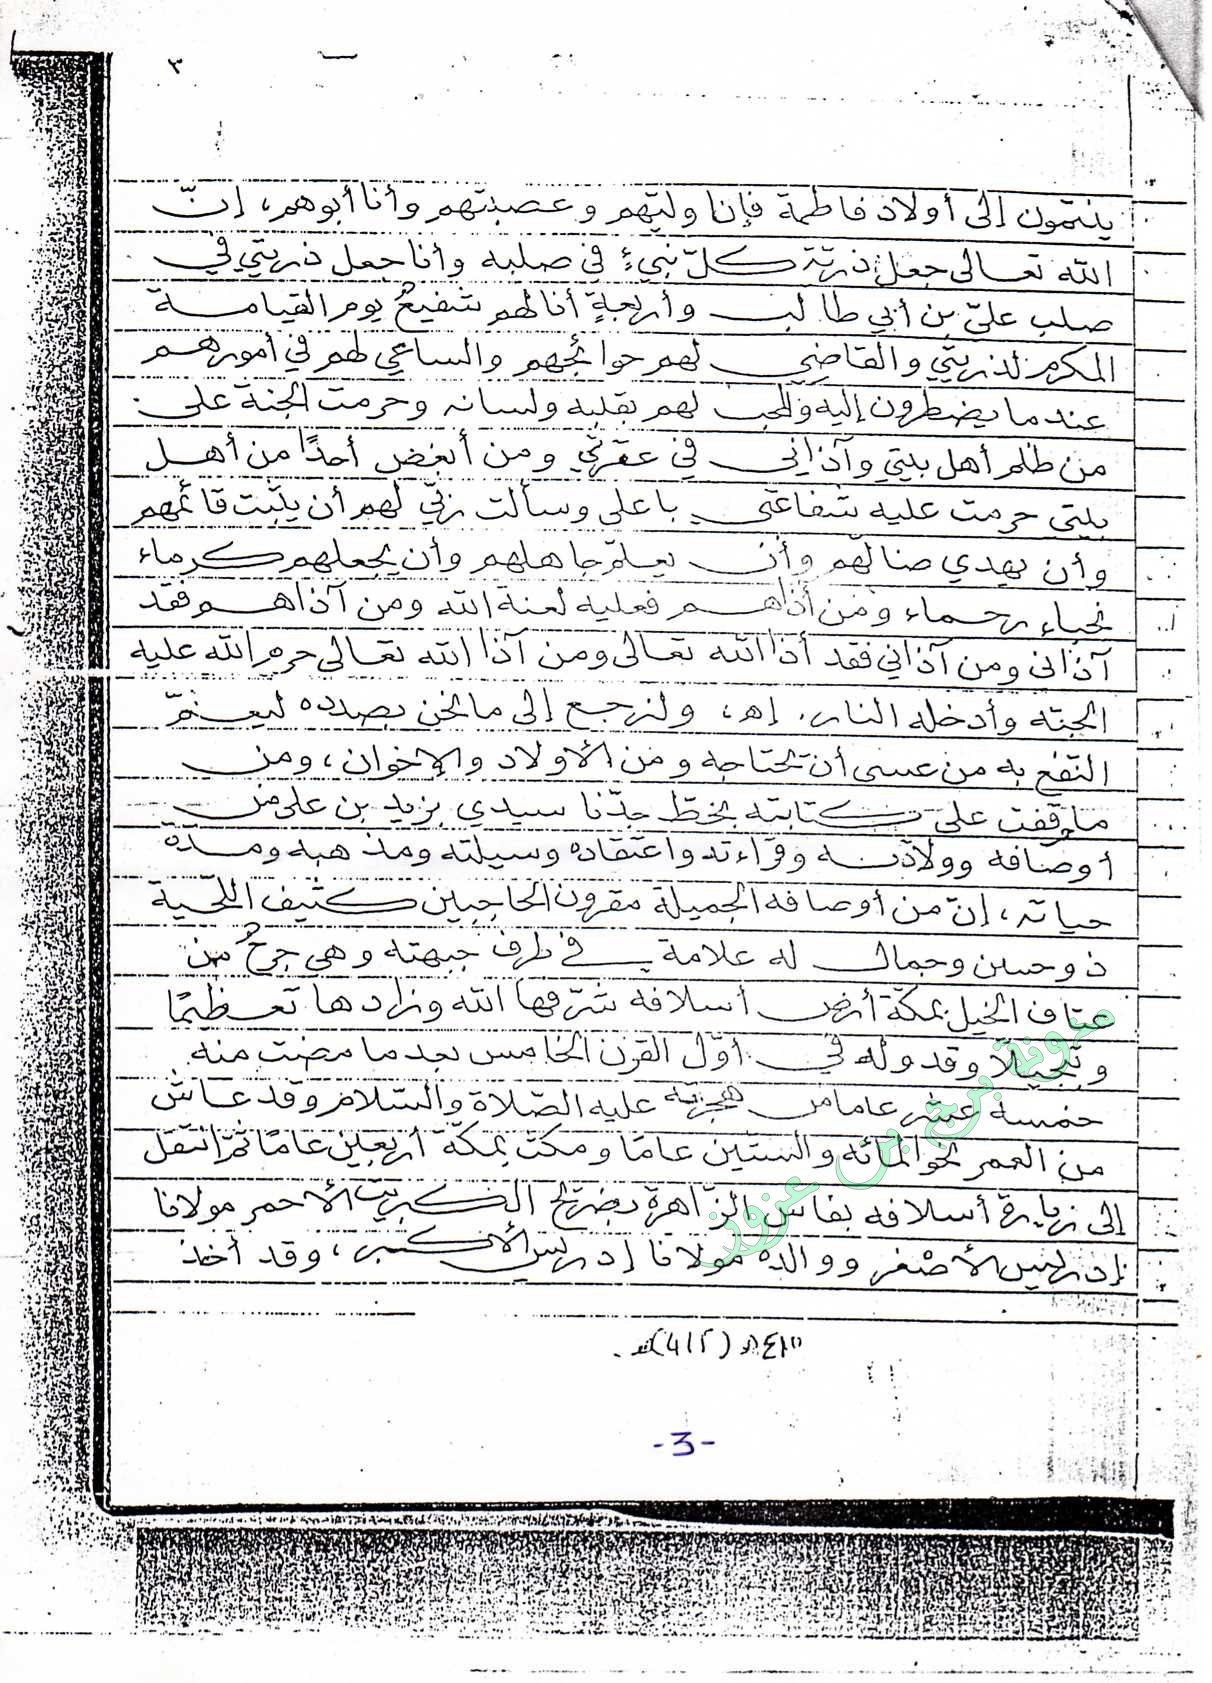 ٣
ينتمون إلى أولاد فاطمة فإنا وليّهم وعصبتهم وأنا أبوهم، إنّ
الله تعالى جعل ذريّة كلّ نبيءٍ في صلبه وأنا جعل ذريتي في
صلب عليّ بن أبي طالب وأربعةٍ أنا لهم شفيعٌ يوم القيامة
المكرم لذريتي والقاضي لهم حوائجهم والساعي لهم في أمورهم
عندما يضطرون إليه والمحب لهم بقلبه ولسانه وحرمت الجنة على
من ظلم أهل بيتي وآذاني في عترتي ومن أبغض أحدًا من أهل
بيتي حرمت عليه شفاعتي يا علي وسألت ربّي لهم أن يثبّت قائمهم
وأن يهدي ضالّهم وأن يعلّم جاهلهم وأن يجعلهم كرماء
نجباء رحماء ومن أذاهم فعليه لعنة الله ومن آذاهم فقد
آذانى ومن آذاني فقد أذا الله تعالى ومن آذا الله تعالى حرم الله عليه
الجنّه وأدخله النار. إهـ، ولنرجع إلى ما نحن بصدده ليعمّ
النّفع به من عسى أن تحتاجه ومن الأولاد والإخوان، ومن
ما وقفت على كتابته بخطّ جدّنا سيدي يزيد بن على من
أوصافه وولادته وقراءته واعتقاده وسيلته ومذهبه ومدّة
حياته، إنّ من أوصافه الجميلة مقرون الحاجبين كثيف اللّحية
ذو حسن وجمال له علامة في طرف جبهته وهي جرحٌ من
عتاف الخيل بمكّة أرض أسلافه شرّفها الله وزادها تعظيمًا
وتبجيلًا وقد وله في أوّل القرن الخامس بعدما مضت منه
خمسة عشر عاما من هجرته عليه الصّلاة والسّلام وقد عاش
من العمر نحو المائه والستّين عامًا ومكث بمكّة أربعين عامًا ثمّ انتقل
إلى زيارة أسلافه بفاس الزّاهرة بضريح الكبريت الأحمر مولانا
إدريس الأصْغر ووالده مولانا إدريس الأكبر، وقد أخذ
(412)
-3-
مدونة برج بن عزوز